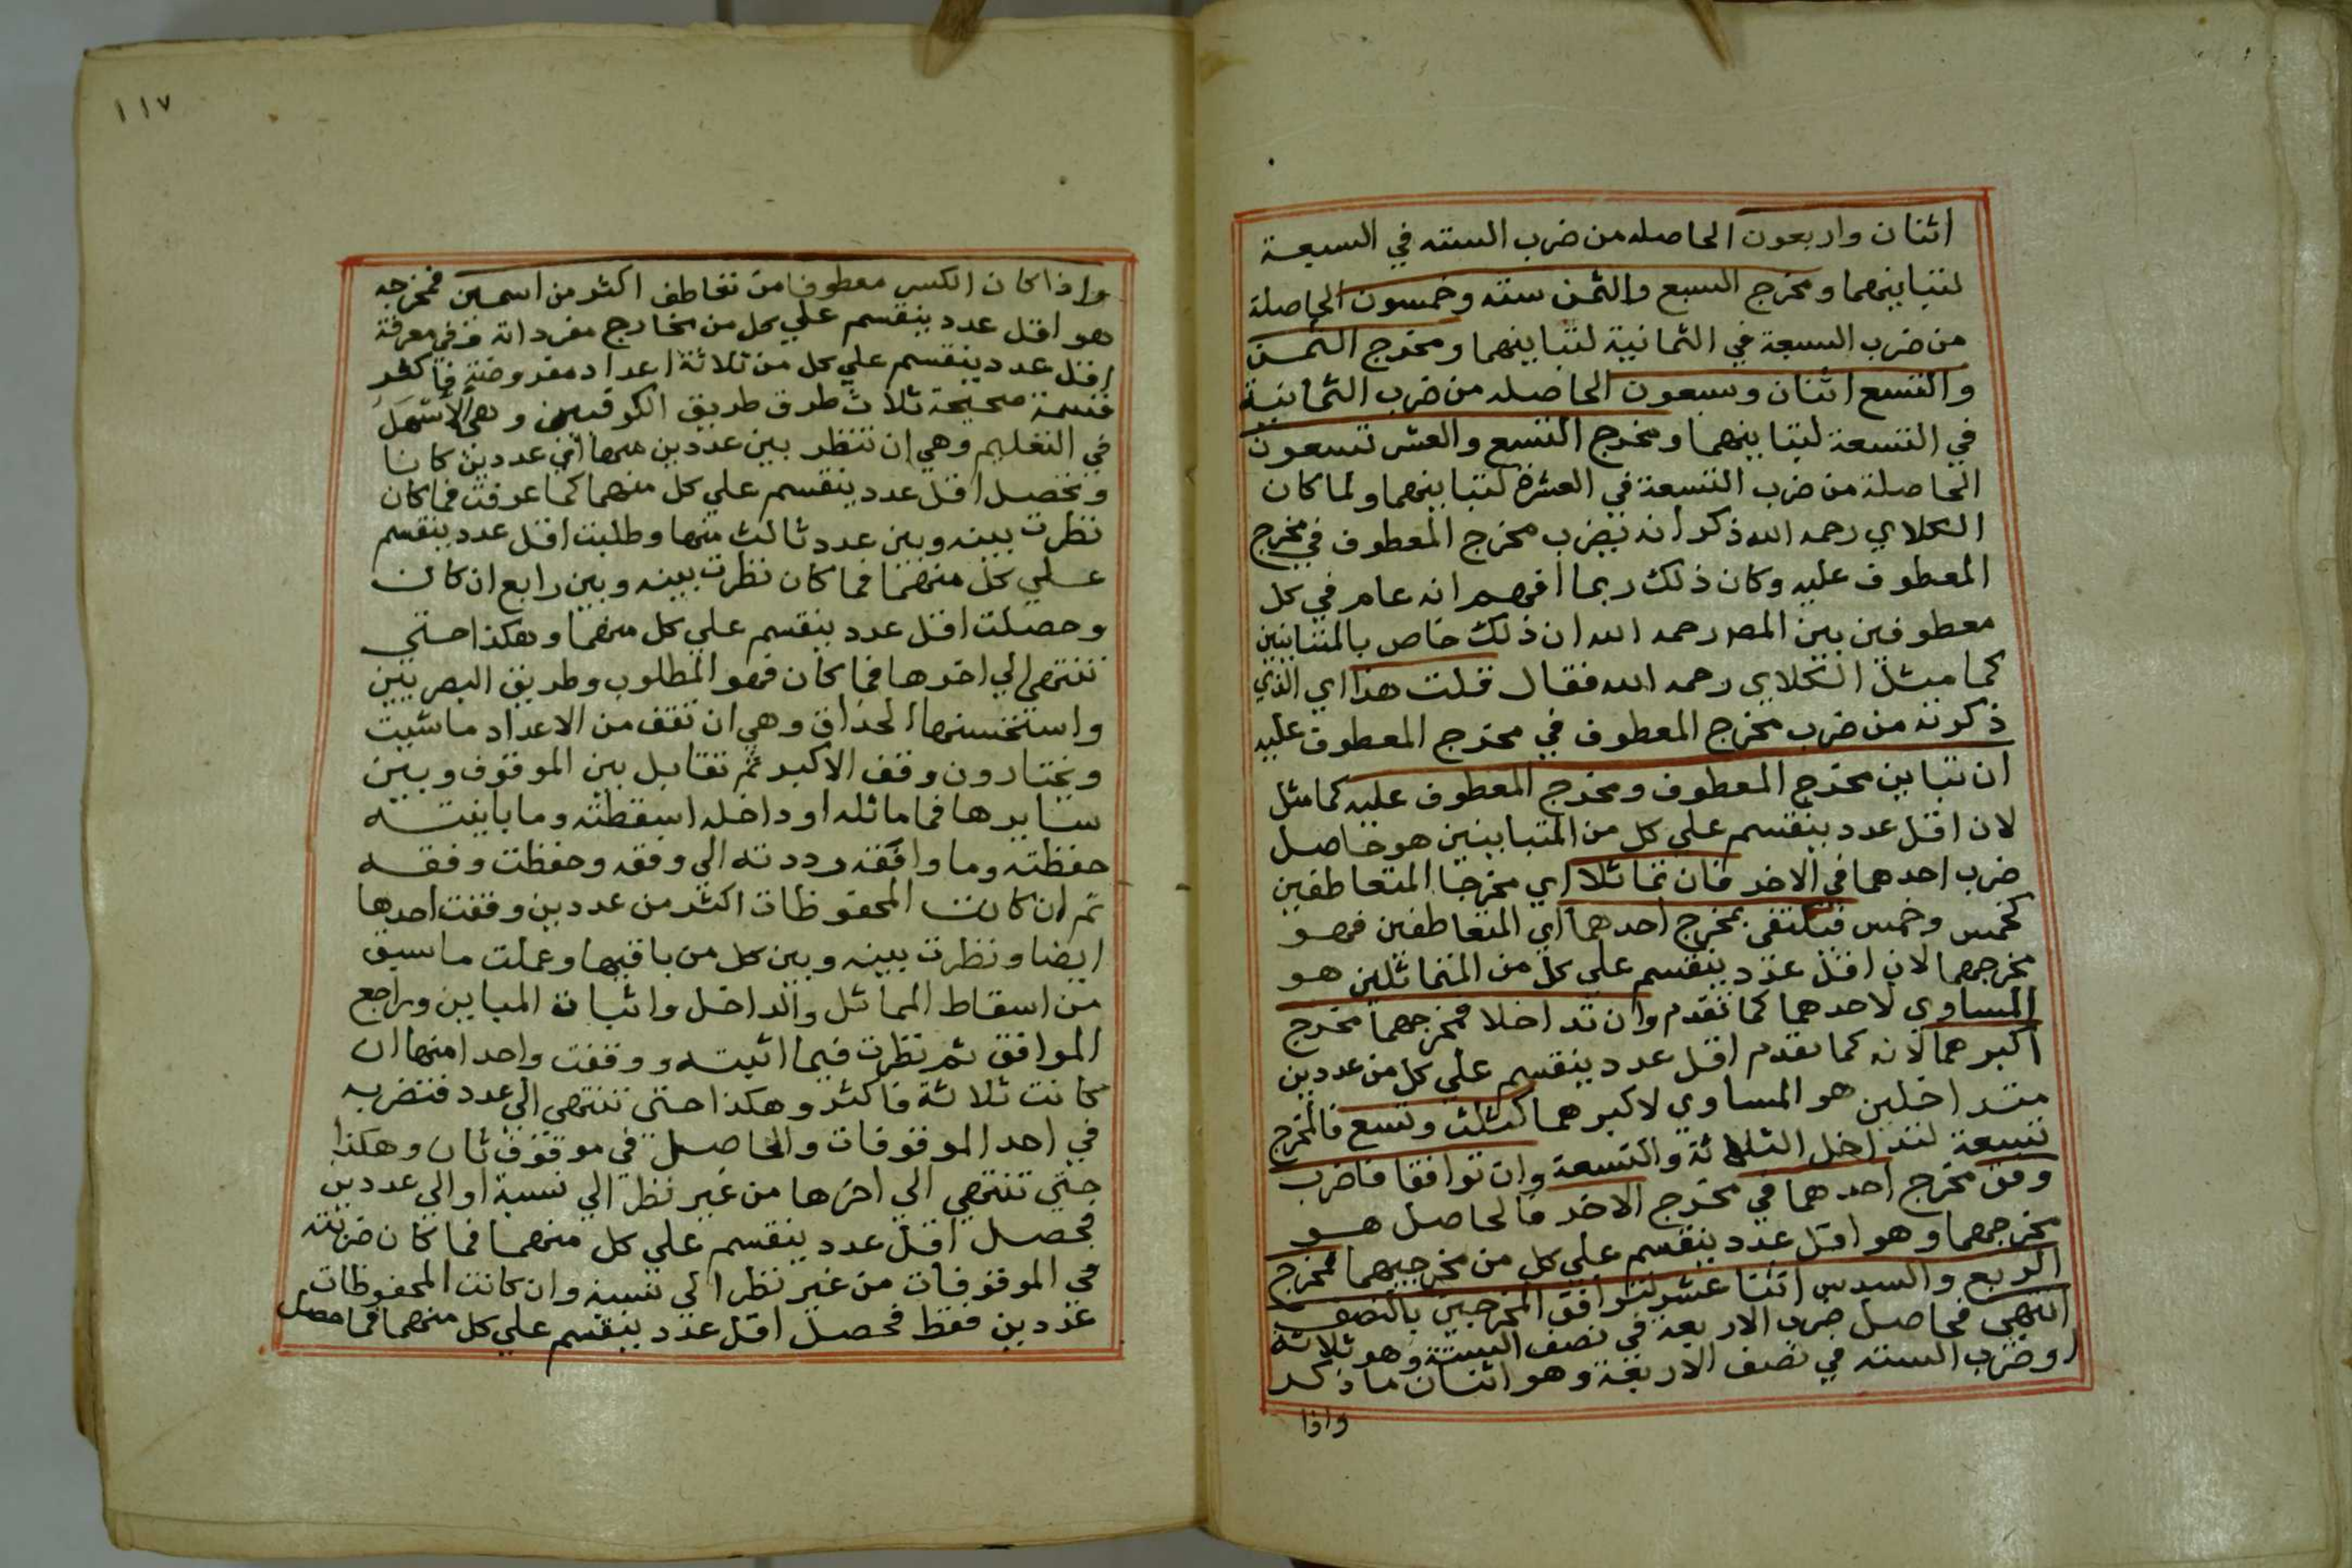 اثنان واربعون الحاصله من ضرب السته في السبعة
لتباينهما ومخرج السبع والثمن سته وخمسون الحاصلة
من ضرب السبعة في الثمانية لتباينهما ومخرج الثمن
والتسع اثنان وسبعون الحاصله من ضرب الثمانية
في التسعة لتباينهما ومخرج التسع والعشر تسعون
الحاصلة من ضرب التسعة في العشرة لتباينهما ولما كان
الكلاي رحمه الله ذكر انه يضرب مخرج المعطوف في مخرج
المعطوف عليه وكان ذلك ربما افهم انه عام في كل
معطوفين بين المصر رحمه الله ان ذلك خاص بالمتباينين
كما مثل الكلاي رحمه الله فقال قلت هذا اي الذي
ذكرته من ضرب مخرج المعطوف في مخرج المعطوف عليه
ان تباين مخرج المعطوف ومخرج المعطوف عليه كما مثل
لان اقل عدد ينقسم علي كل من المتباينين هو حاصل
ضرب احدهما في الاخر فان تماثلا اي مخرجا المتعاطفين
كخمس وخمس فيكتفى بمخرج احدهما اي المتعاطفين فهو
مخرجهما لان اقل عدد ينقسم علي كل من المتماثلين هو
المساوي لاحدهما كما تقدم وان تداخلا فمخرجهما مخرج
اكبرهما لانه كما تقدم اقل عدد ينقسم علي كل من عددين
متداخلين هو المساوي لاكبرهما كثلث وتسع فالمخرج
تسعة لتداخل الثلاثة والتسعة وان توافقا فاضرب
وفق مخرج احدهما في مخرج الاخر فالحاصل هو
مخرجهما وهو اقل عدد ينقسم علي كل من مخرجيهما فمخرج
الربع والسدس اثنا عشر لتوافق المخرجين بالنصف
انتهى فحاصل ضرب الاربعة في نصف الستة وهو ثلاثة
او ضرب السته في نصف الاربعة وهو اثنان ما ذكر
واذا
١١٧
واذا كان الكسر معطوفا من تعاطف اكثر من اسمين فمخرجه
هو اقل عدد ينقسم علي كل من مخارج مفرداته وفي معرفة
اقل عدد ينقسم علي كل من ثلاثة اعداد مفروضة فاكثر
قسمة صحيحة ثلاث طرق طريق الكوفيين وهي الاسهل
في التعليم وهي ان تنظر بين عددين منها اي عددين كانا
وتحصل اقل عدد ينقسم علي كل منهما كما عرفت فما كان
نظرت بينه وبين عدد ثالث منها وطلبت اقل عدد ينقسم
علي كل منهما فما كان نظرت بينه وبين رابع ان كان
وحصلت اقل عدد ينقسم علي كل منهما وهكذا حتي
تنتهي الي اخرها فما كان فهو المطلوب وطريق البصريين
واستحسنها الحذاق وهي ان تقف من الاعداد ما شيت
ويختارون وقف الاكبر ثم تقابل بين الموقوف وبين
سايرها فما ماثله او داخله اسقطته وما باينته
حفظته وما وافقه رددته الي وفقه وحفظت وفقه
ثم ان كانت المحفوظات اكثر من عددين وقفت احدها
ايضا ونظرت بينه وبين كل من باقيها وعملت ما سبق
من اسقاط المماثل والداخل واثبات المباين وراجع
الموافق ثم نظرت فيما اثبته ووقفت واحدا منها ان
كانت ثلاثة فاكثر وهكذا حتى تنتهي الي عدد فتضربه
في احد الموقوفات والحاصل في موقوف ثان وهكذا
حتي تنتهي الي اخرها من غير نظر الي نسبة او الي عددين
فحصل اقل عدد ينقسم علي كل منهما فما كان ضربته
في الموقوفات من غير نظر الي نسبة وان كانت المحفوظات
عددين فقط فحصل اقل عدد ينقسم علي كل منهما فما حصل